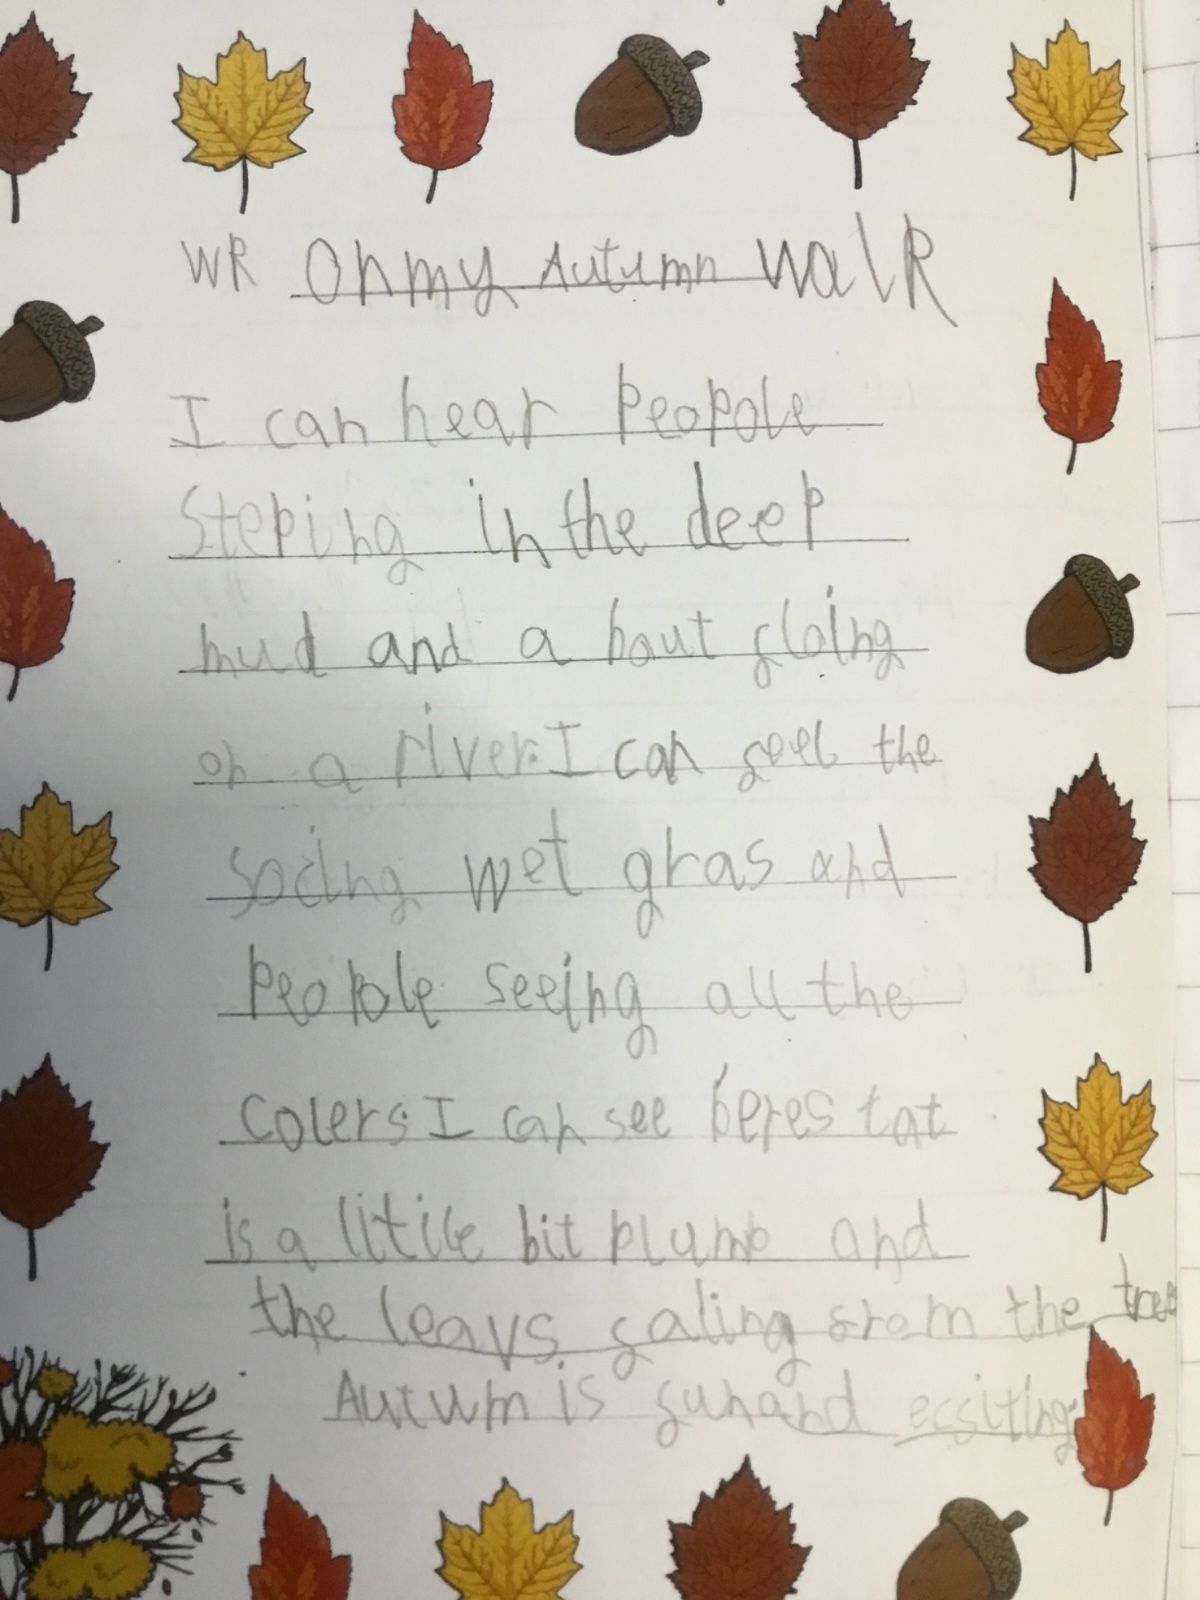 WR On my Autumn walk
I can hear peopole
Steping in the deep
mud and a bout floing
on a river. I can feel the
socing wet gras and
peopole seeing all the
colers. I can see beres tat
is a litile bit plump and
the leavs faling from the trees
Autum is fun and ecsiting.